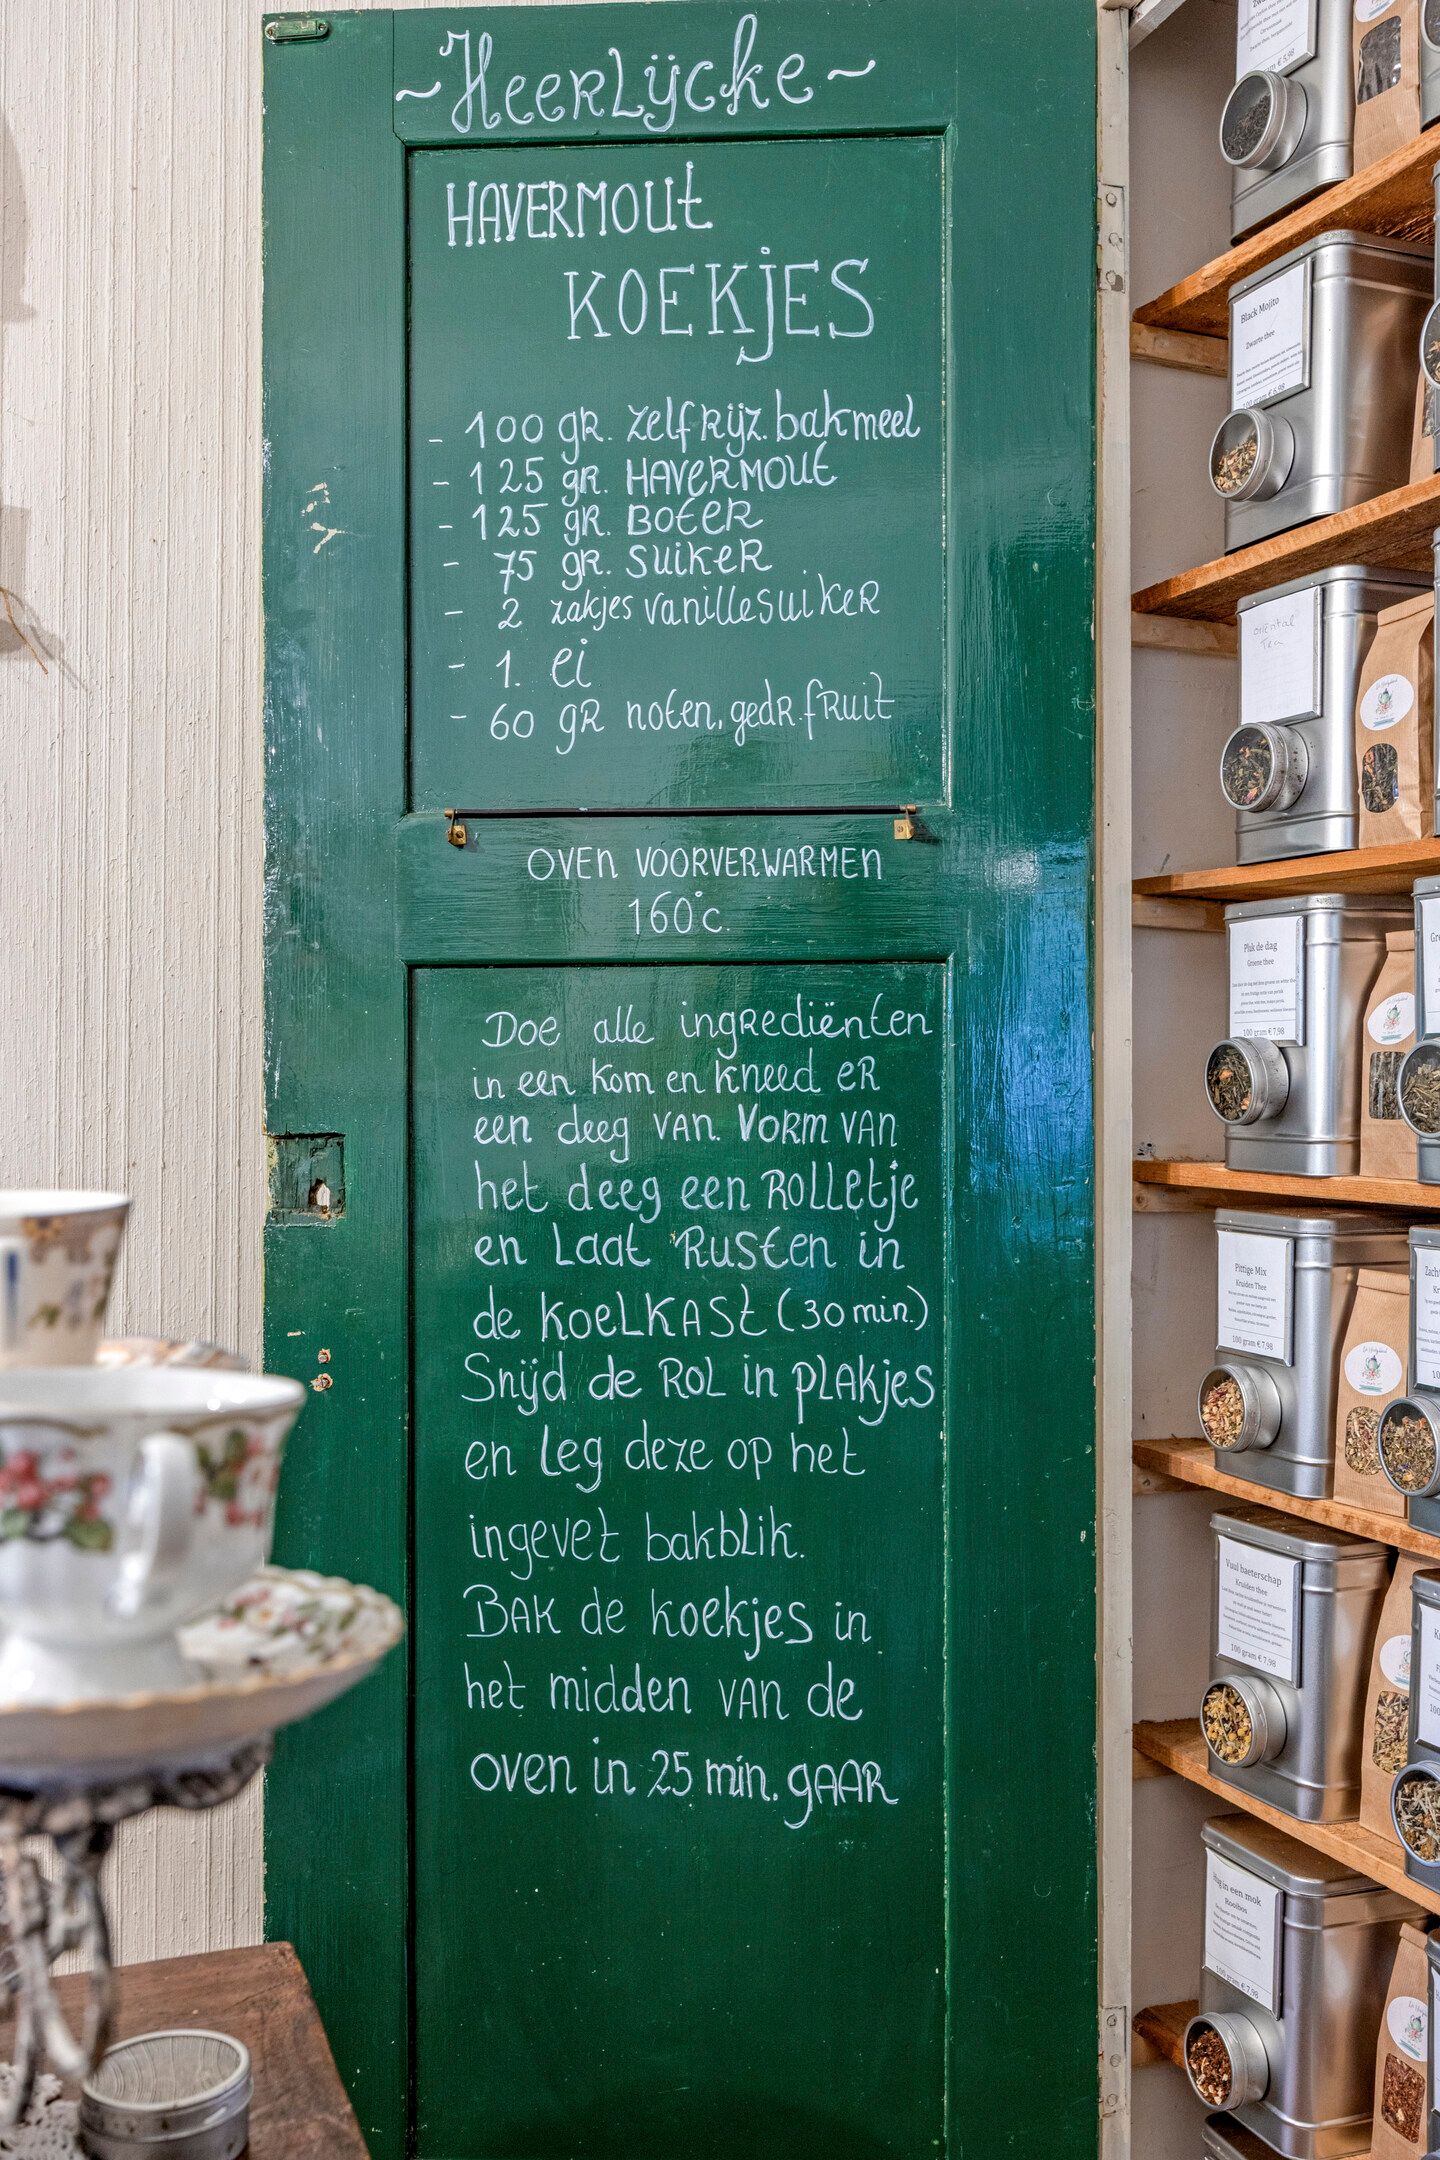 ~Heerlÿcke~
HAVERMOUt
KOEKjES
- 100 gR. zelfRijz. bakmeel
- 125 gR. HAVERMOUt
- 125 gR. BOtER
- 75 gR. SuikeR
- 2 zakjes vanillesuikeR
- 1. ei
- 60 gR noten, gedR. fRuit
OVEN VOORVERWARMEN
160°c.
Doe alle ingRediënten
in een kom en kneed eR
een deeg van. VORM VAN
het deeg een ROLLetje
en Laat Rusten in
de KoeLKASt (30 min.)
Snijd de ROL in pLAKjes
en leg deze op het
ingevet bakblik.
BAK de koekjes in
het midden VAN de
oven in 25 min. gAAR
Black Mojito
Zwarte thee
Oriëntal
Tea
Pluk de dag
Groene thee
100 gram € 7,98
Pittige Mix
Kruiden Thee
100 gram € 7,98
Vuul baeterschap
Kruiden thee
100 gram € 7,98
Hug in een mok
Rooibos
100 gram € 7,98